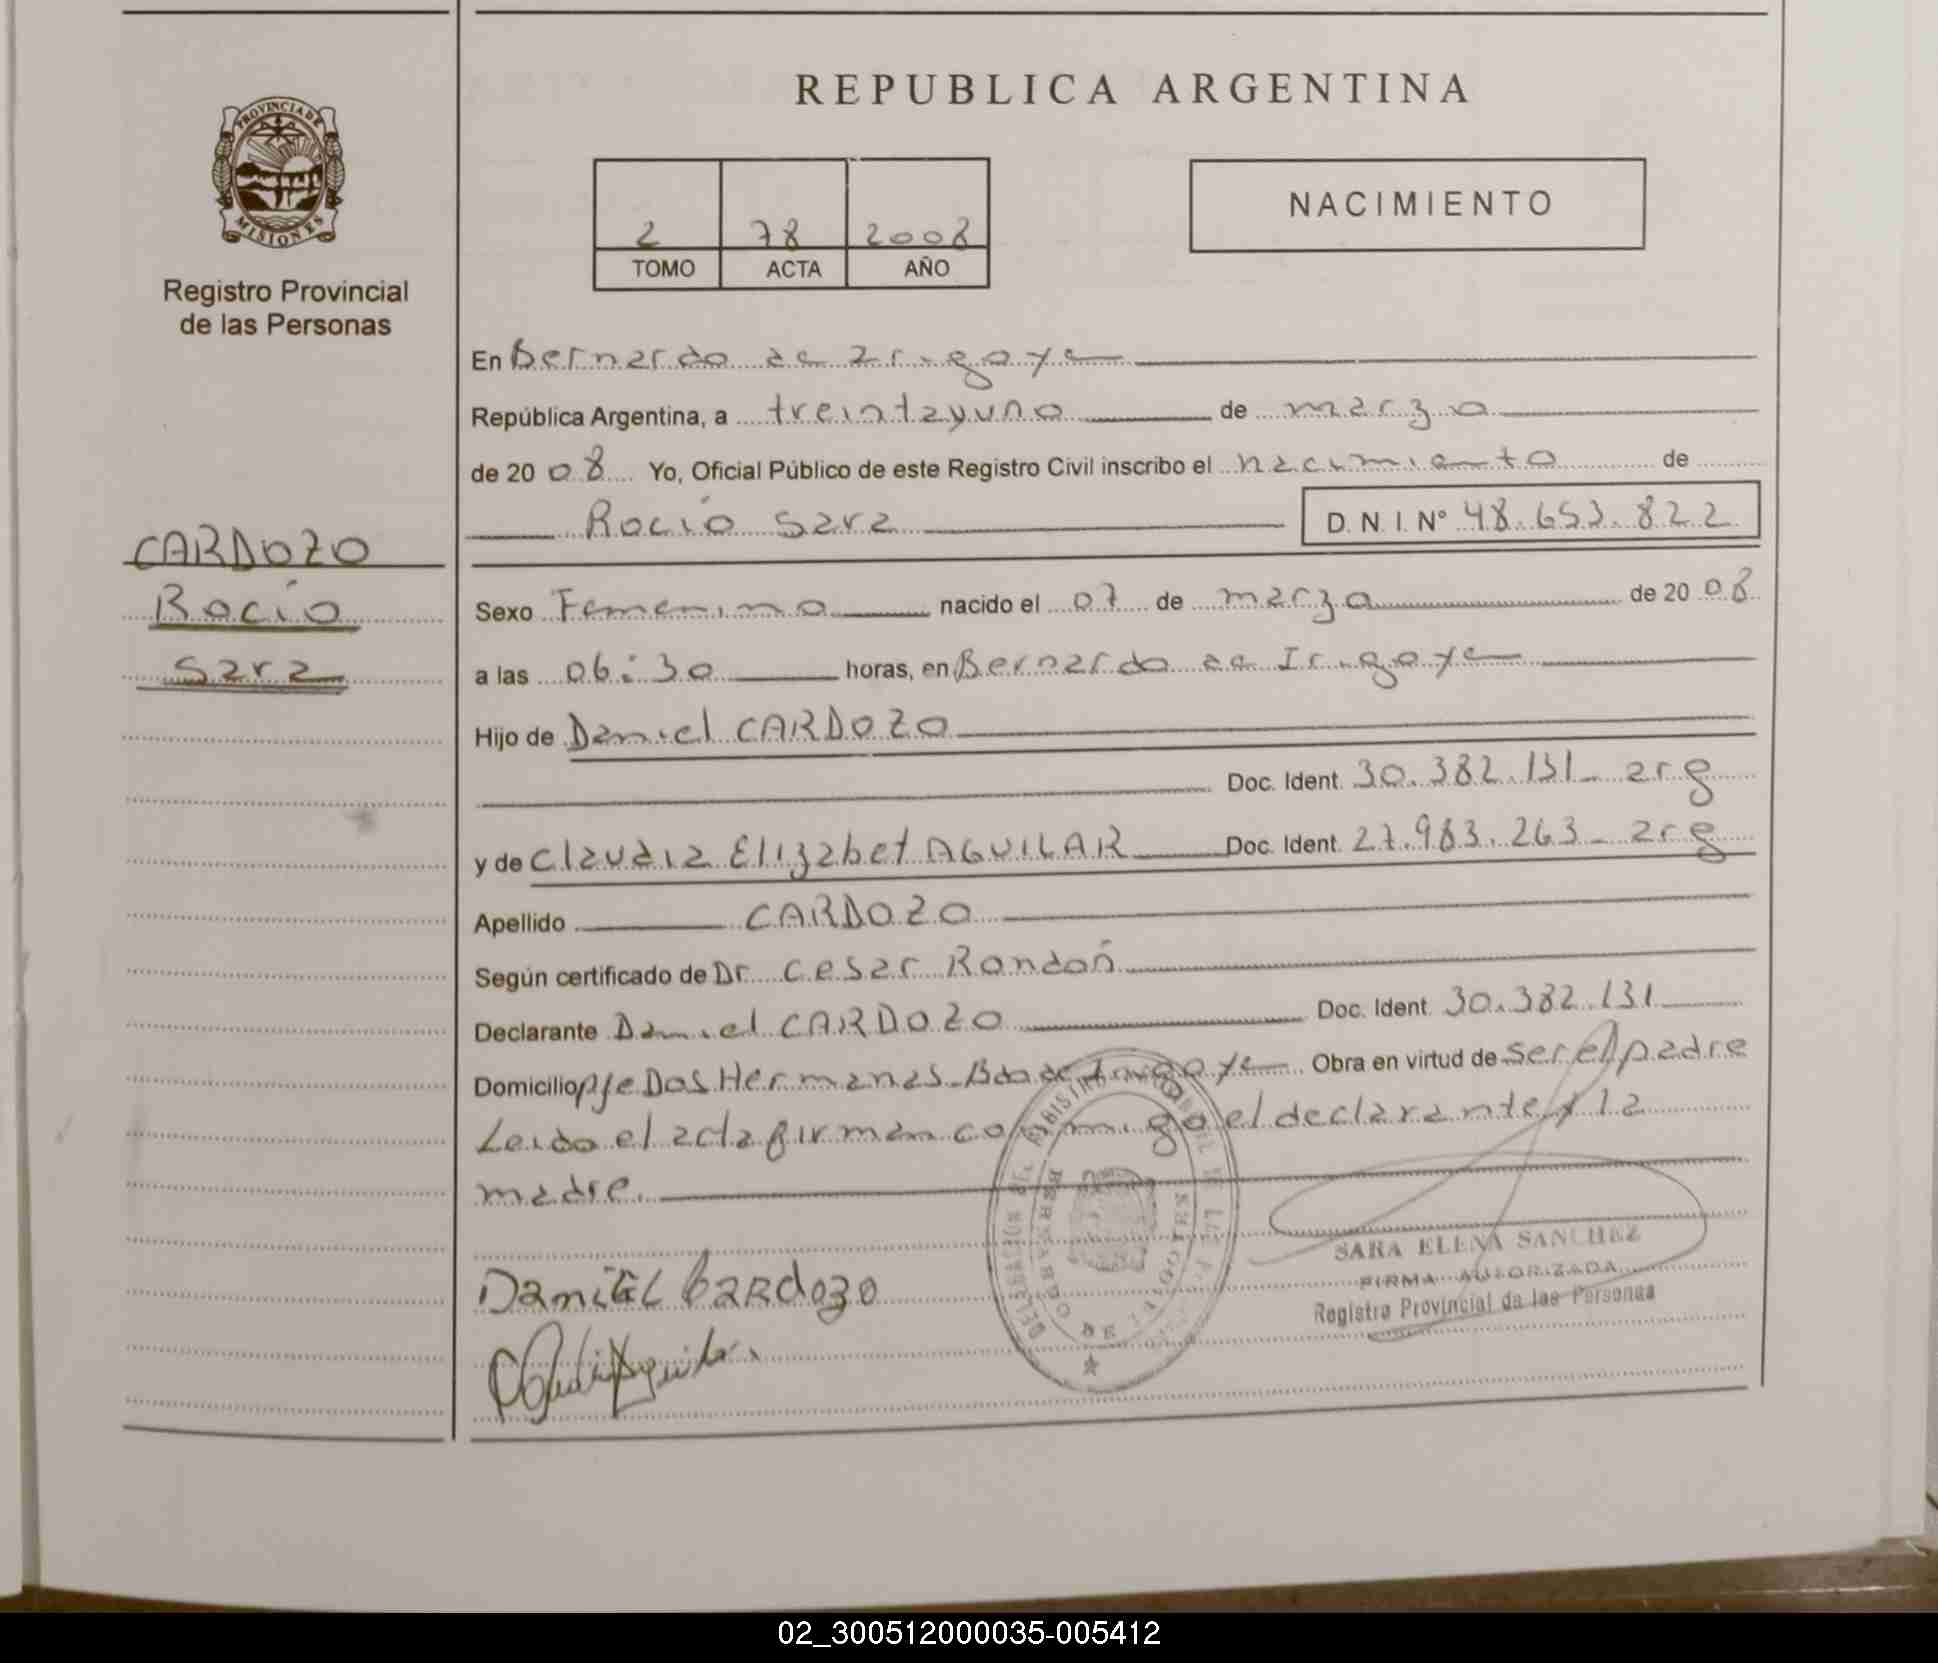 REPUBLICA ARGENTINA
PROVINCIA DE
MISIONES
Registro Provincial
de las Personas
2 78 2008
TOMO ACTA AÑO
NACIMIENTO
En Bernardo de Irigoye
República Argentina, a treintayuno de marzo
de 20 08 Yo, Oficial Público de este Registro Civil inscribo el nacimiento de
Rocío Sara D. N. I. Nº 48.653.822
CARDOZO
Rocío
Sara
Sexo Femenino nacido el 07 de marzo de 20 08
a las 06:30 horas, en Bernardo de Irigoye
Hijo de Daniel CARDOZO
Doc. Ident. 30.382.131_ arg
y de Claudia Elizabet AGUILAR Doc. Ident. 27.983.263_ arg
Apellido CARDOZO
Según certificado de Dr Cesar Rondón
Declarante Daniel CARDOZO Doc. Ident. 30.382.131
Domicilio pje Dos Hermanas_Bdo de Irigoye Obra en virtud de ser el padre
Leido el acta firman conmigo el declarante y la
madre.
SARA ELENA SANCHEZ
FIRMA AUTORIZADA
Registro Provincial de las Personas
DaniEL CARdozo
02_300512000035-005412